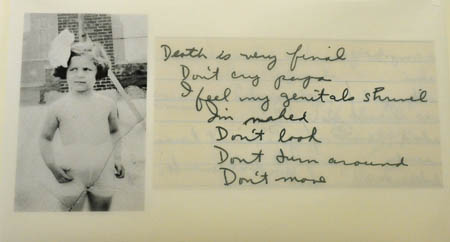 Death is very final
Don't cry papa
I feel my genitals shrivel
I'm naked
Don't look
Don't turn around
Don't move